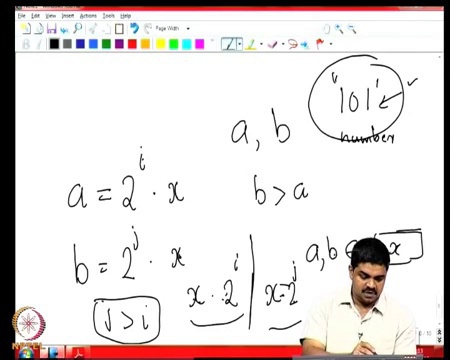 File Edit View Insert Actions Tools Help
Page Width
"101"
number
a, b
a = 2^i · x
b > a
b = 2^j · x
a, b ∈
x
j > i
x · 2^i
x · 2^j